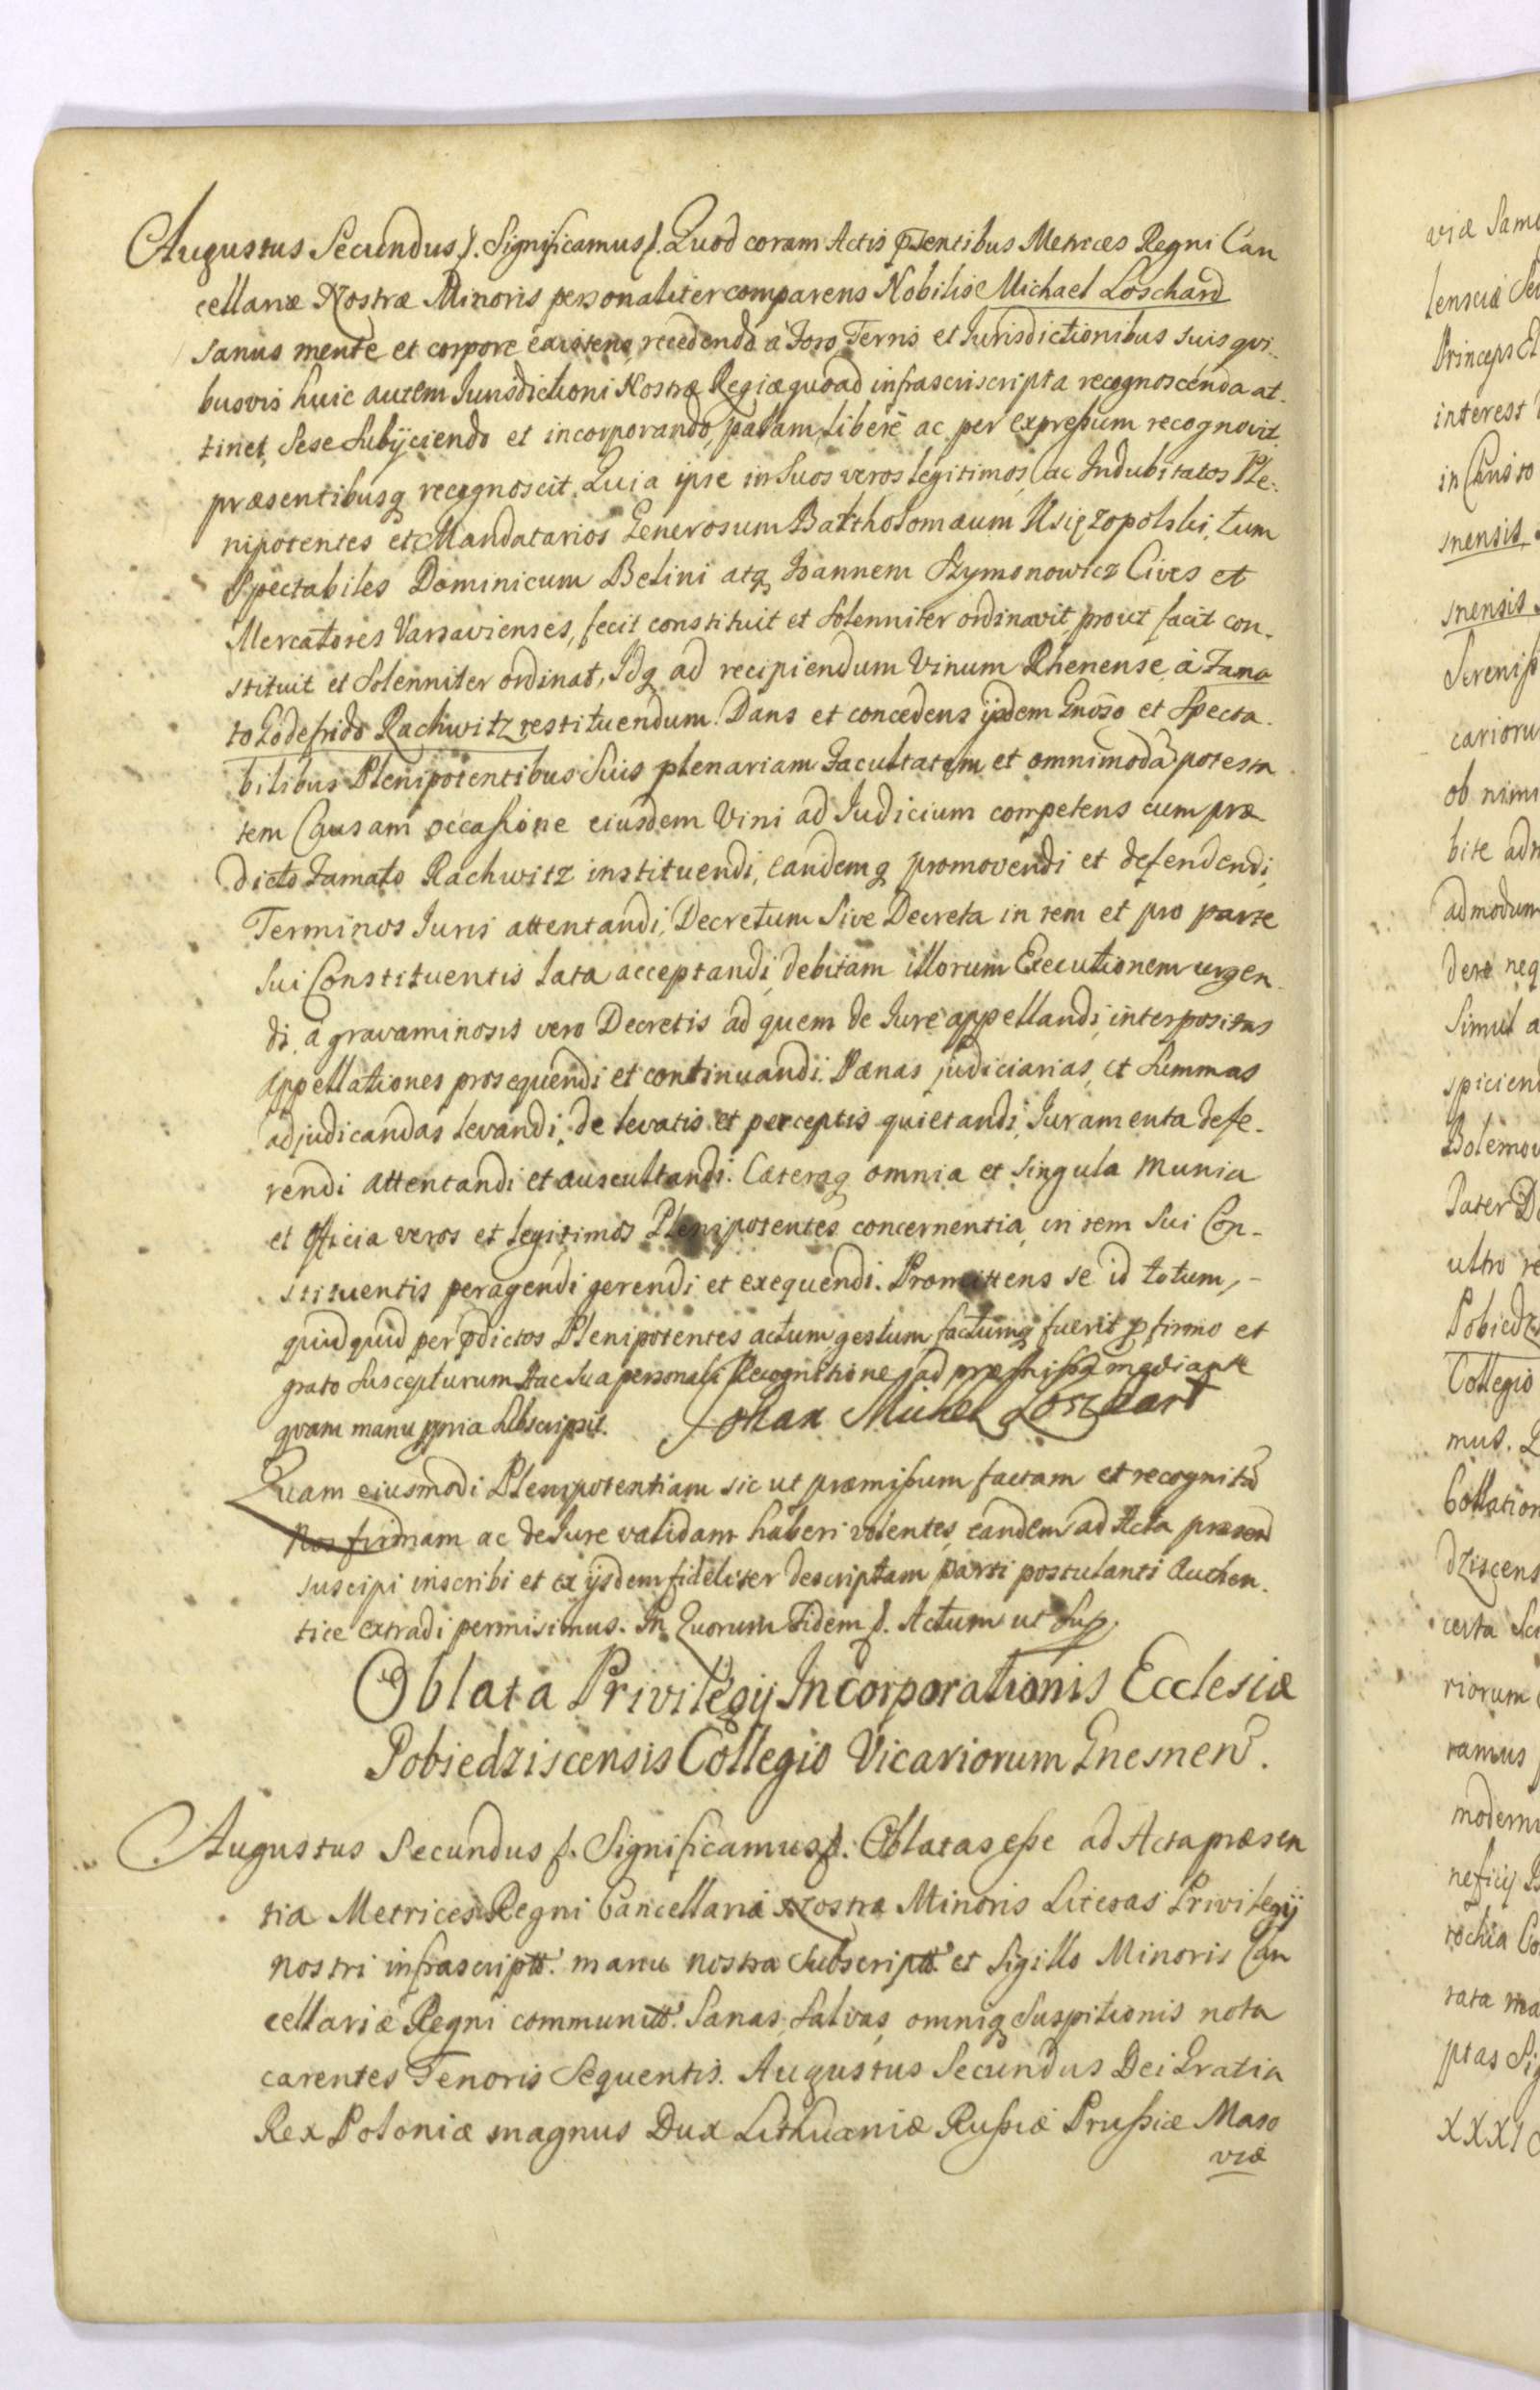 Augustus Secundus f. Significamus f. Quod coram Actis pñsentibus Metrices Regni Can
cellariæ Nostræ Minoris personaliter comparens Nobilis Michael Loschard
sanus mente et corpore existens, recedendo à Foro, Terris et Jurisdictionibus suis qvi-
busvis huic autem Jurisdictioni Nostræ Regiæ quoad infrascriscripta recognoscenda at-
tinet, Sese Subijciendo et incorporando, palam, liberè ac per expreßum recognovit
præsentibusq recognoscit. Quia ipse in Suos veros legitimos, ac Indubitatos Ple-
nipotentes et Mandatarios Generosum Bartholomæum Xsięzopolski, tum
Spectabiles Dominicum Belini atq Joannem Szymonowicz Cives et
Mercatores Varsavienses, fecit constituit et Solenniter ordinavit, prout facit con-
stituit et Solenniter ordinat, Idq ad recipiendum Vinum Rhenense à Fama
to Godefrido Rachwitz restituendum. Dans et concedens ijsdem Gnõso et Specta-
bilibus Plenipotentibus Suis plenariam Facultatem et omnimodã potesta
tem Causam occasione eiusdem Vini ad Judicium competens cum præ
dicto Famato Rachwitz instituendi, eandemq promovendi et defendendi,
Terminos Juris attentandi, Decretum Sive Decreta in rem et pro parte
Sui Constituentis lata acceptandi, debitam illorum Executionem urgen-
di, à gravaminosis vero Decretis ad quem de Jure appellandi, interpositas
appellationes prosequendi et continuandi. Pænas judiciarias, et Summas
adjudicandas levandi, de levatis et perceptis quietandi, Juramenta defe-
rendi attentandi et auscultandi. Cæteraq omnia et singula munia
et Officia veros et legitimos Plenipotentes concernentia, in rem Sui Con-
stituentis peragendi gerendi et exequendi. Promittens se id totum,-
quidquid per pdictos Plenipotentes actum gestum factumq fuerit p firmo et
grato Suscepturum Hac Sua personali Recognitione ad præmißa mediante
qvam manu ppria Subscripsit. Johan Michel Loschart
Quam eiusmodi Plenipotentiam sic ut præmißum factam et recognitã
Nos firmam ac de Jure validam haberi volentes, eandem ad Acta præsen
suscipi inscribi et ex ijsdem fideliter descriptam parti postulanti Authen-
tice extradi permisimus. In Quorum Fidem f. Actum ut Sup.
Oblata Privilegij Incorporationis Ecclesiæ
Pobiedziscensis Collegio Vicariorum Gnesnen.
Augustus Secundus f. Significamus f. Oblatas eße ad Acta præsen
tia Metrices Regni Cancellariæ Nostræ Minoris Literas Privilegij
nostri infrascriptt. manu nostra Subscriptt. et Sigillo Minoris Can
cellariæ Regni communitt. Sanas, Salvas, omniq Suspitionis nota
carentes Tenoris Sequentis. Augustus Secundus Dei Gratia
Rex Poloniæ magnus Dux Lithuaniæ Rußiæ Prußiæ Maso
viæ